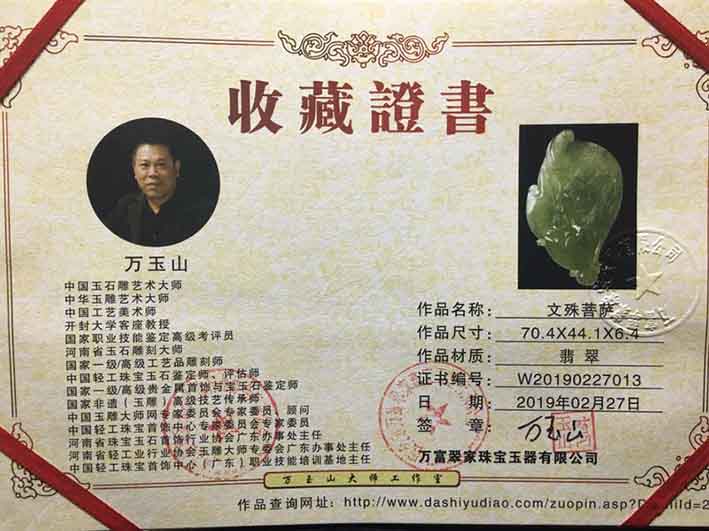 收藏證書
万玉山
中国玉石雕艺术大师
中华玉雕艺术大师
中国工艺美术师
开封大学客座教授
国家职业技能鉴定高级考评员
河南省玉石雕刻大师
国家一级/高级工艺品雕刻师
中国轻工珠宝玉石鉴定师、评估师
国家一级/高级贵金属首饰与宝玉石鉴定师
国家非遗（玉雕）高级技艺传承师
中国玉雕大师网专家委员会专家委员、顾问
中国轻工珠宝首饰中心专家委员会专家委员
河南省珠宝玉石首饰行业协会广东办事处主任
河南省工业行业协会玉雕大师专委会广东办事处主任
中国轻工珠宝首饰中心（广东）职业技能培训基地主任
作品名称: 文殊菩萨
作品尺寸: 70.4X44.1X6.4
作品材质: 翡翠
证书编号: W20190227013
日 期: 2019年02月27日
签 章: 万玉山
万富翠家珠宝玉器有限公司
万玉山大师工作室
作品查询网址: http://www.dashiyudiao.com/zuopin.asp?